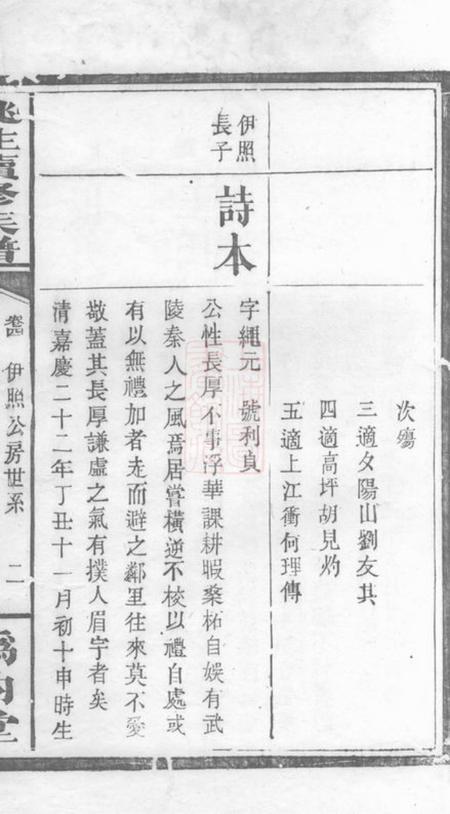 次殤
三適夕陽山劉友其
四適高坪胡見灼
五適上江衝何理傳
伊照
長子
詩本
字繩元 號利貞
公性長厚不事浮華課耕暇桑柘自娛有武
陵秦人之風焉居嘗橫逆不校以禮自處或
有以無禮加者走而避之鄰里往來莫不愛
敬蓋其長厚謙虛之氣有撲人眉宇者矣
清嘉慶二十二年丁丑十一月初十申時生
續修族譜
伊照公房世系 二